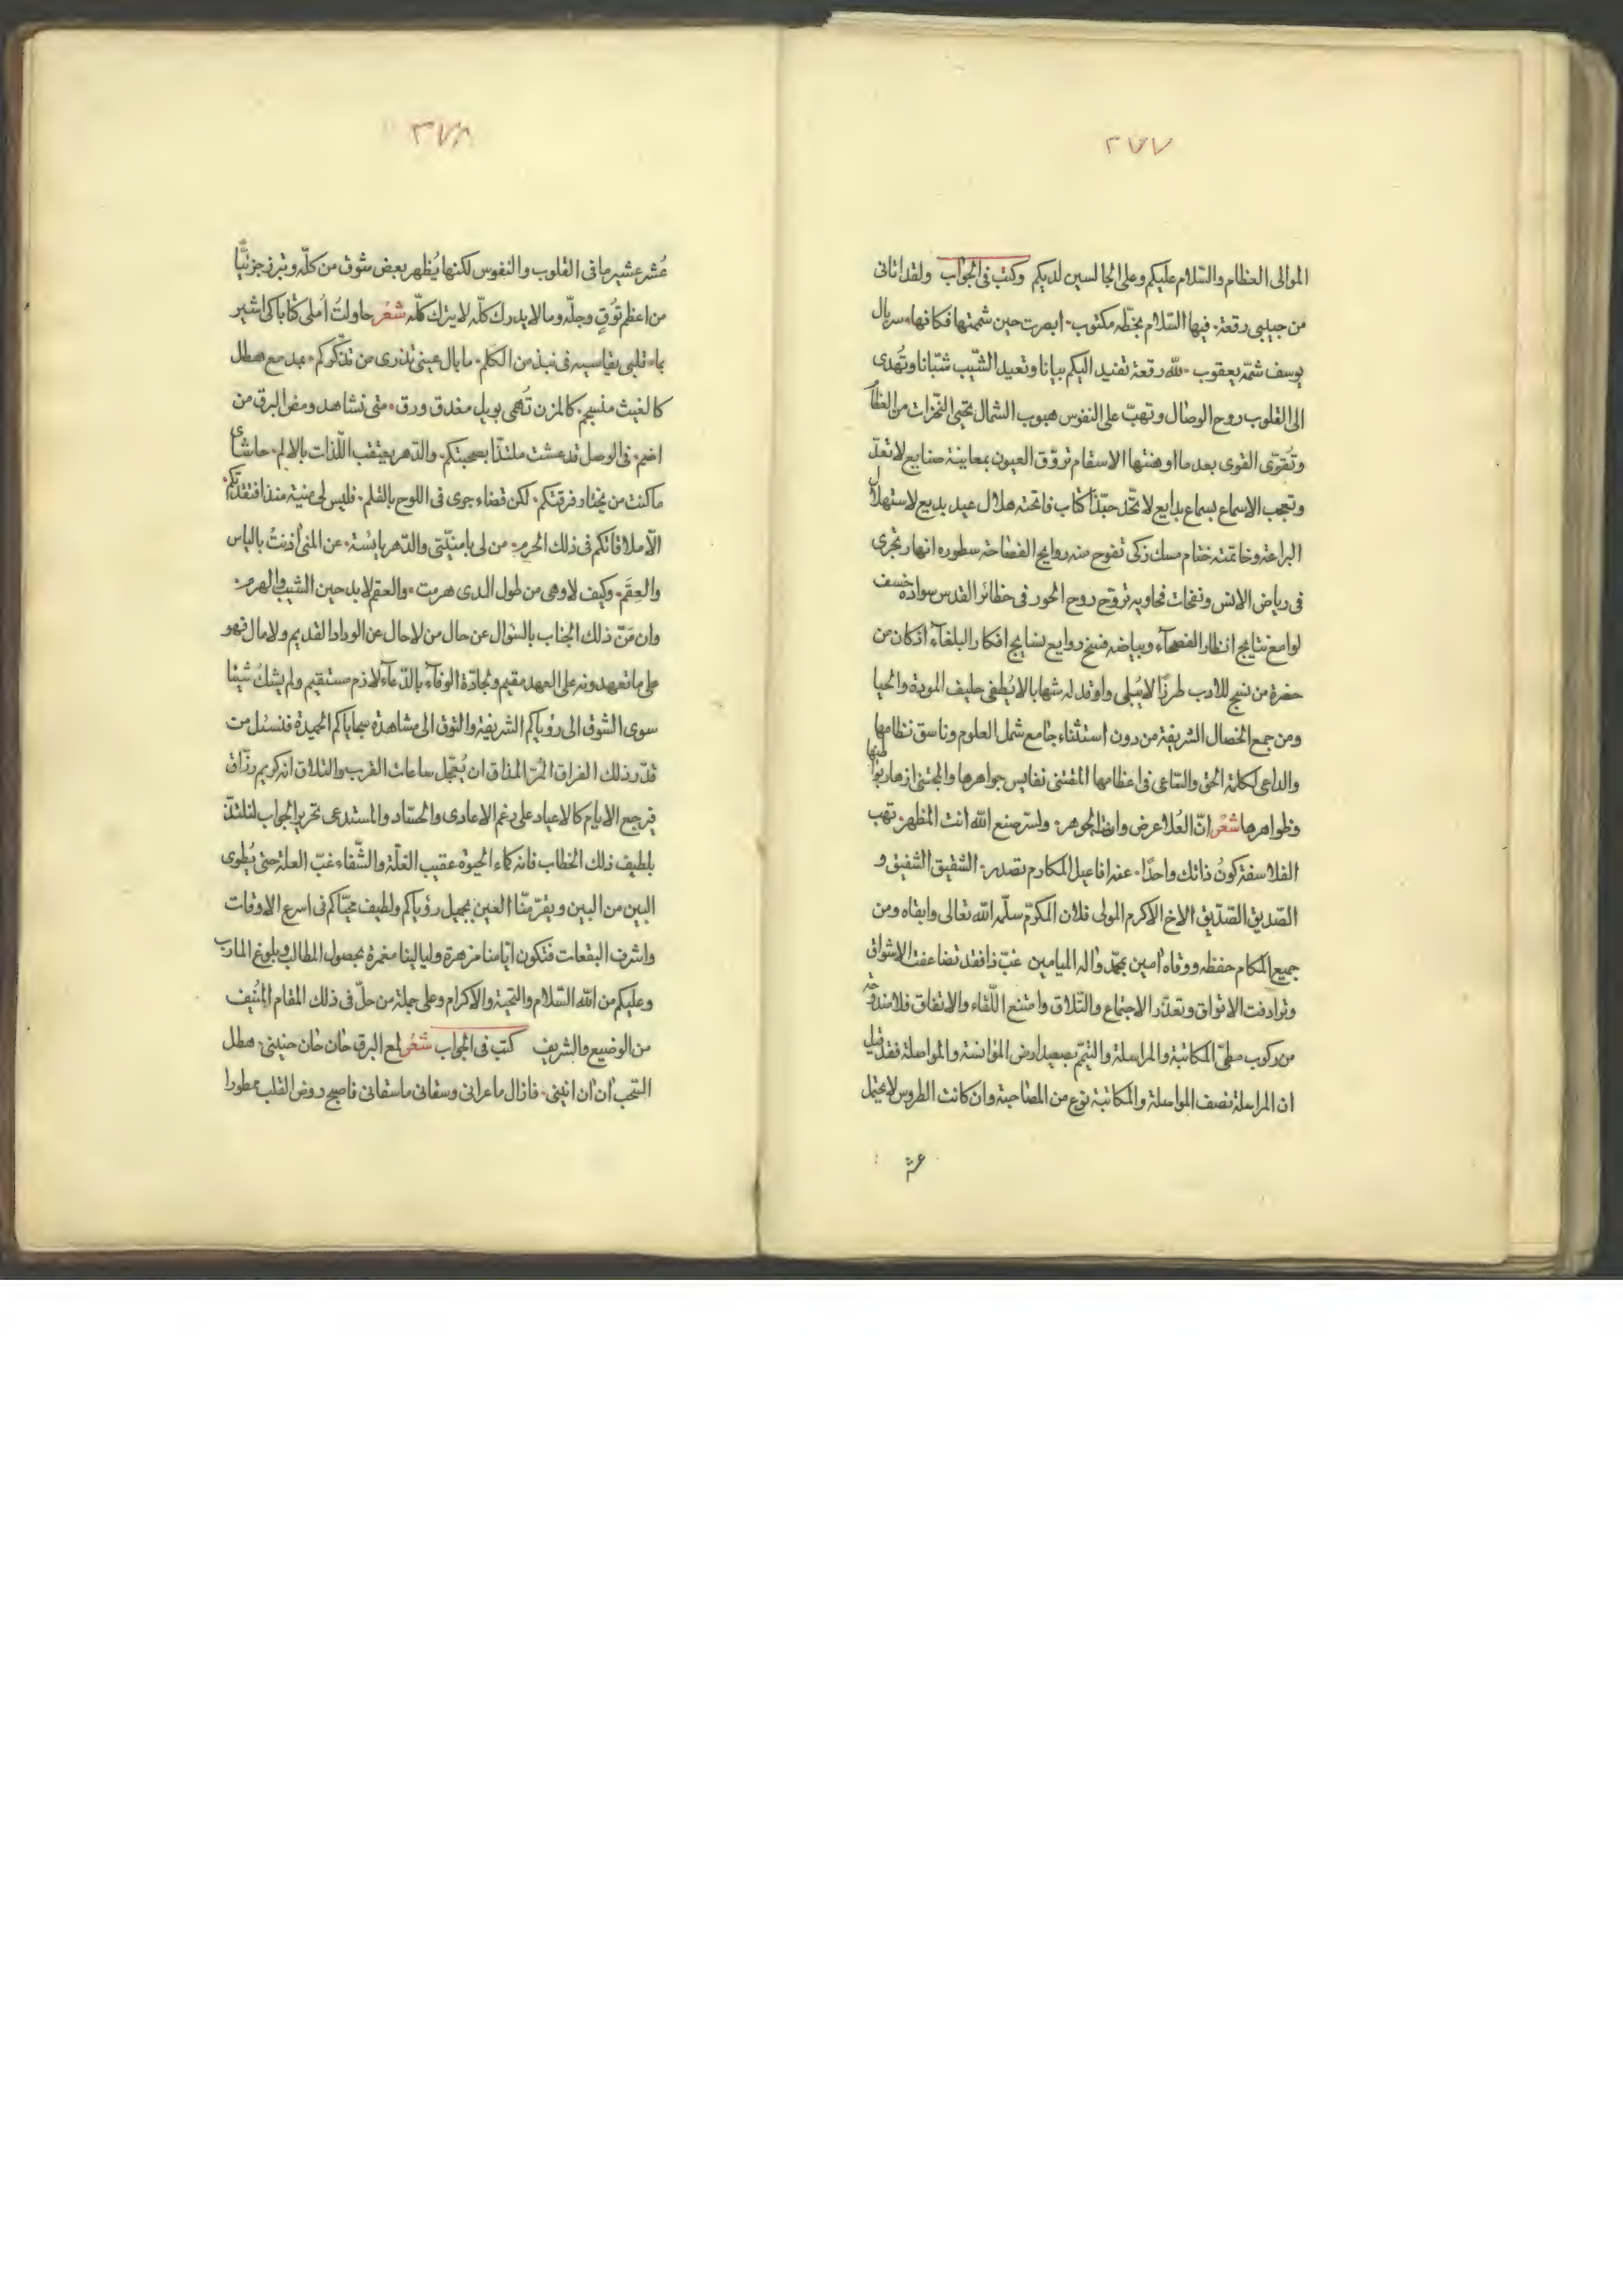 ٣٧٧
الموالى العظام والسّلام عليكم وعلى الجالسين لديكم وكتب فى الجواب ولقد اتانى
من حبيبى رقعة. فيها السّلام بخطّه مكتوب. ابصرت حين شممتها فكانها. سربال
يوسف شمّه يعقوب. لله رقعة تفيد اليكم بيانا وتعيد الشّيب شبّانا وتُهدى
الى القلوب روح الوصال وتهبّ على النفوس هبوب الشمال تحيى النّخرات من العظا
وتُقوّى القوى بعد ما اوهنتها الاسقام تروّق العيون بمعاينة صنايع لا تعدّ
وتعجب الاسماع بسماع بدايع لا تحّد حبّذا كتاب فاتحته هلال عيد بديع لاستهلال
البراعة وخاتمته ختام مسك زكى تفوح منه روايح الفصاحة سطوره انهار تجرى
فى رياض الانس ونفحات فحاويه تروّح روح الحور فى حظائر القدس سواده خسف
لوامع نتايج انظار الفصحآء وبياضه فسخ روايع نسايج افكار البلغآء اذ كان من
حضرة من نسج للادب طرزًا لا يُبلى واوقد له شهابا لا يُطفى حليف المودة والحيا
ومن جمع الخصال الشريفة من دون استثناء جامع شمل العلوم وناسق نظامها
والداعى لكلمة الحق والسّاعى فى اعظامها المقتنى نفايس جواهرها والمجتنى ازهار بواطنها
وظواهرها شعْر انّ العُلا عرض وانت الجوهر. ولسر صنع الله انت المظهر. تهب
الفلاسفة كونُ ذاتك واحدًا. عنه افاعيل المكارم تصدر. الشفيق الشفيق و
الصّديق الصّدّيق الاخ الاكرم المولى فلان المكرّم سلّمه الله تعالى وابقاه ومن
جميع المكام حفظه ووقاه امين بمحمّد واله الميامين غبّ ذا فقد تضاعفت الاشواق
وترادفت الاتواق وتعذّر الاجتماع والتّلاق وامتنع اللّقاء والاتفاق فلا مندوحة
من ركوب مطىّ المكاتبة والمراسلة والتيمّم بصعيد ارض المؤانسة والمواصلة فقد قيل
ان المراسلة نصف المواصلة والمكاتبة نوع من المصاحبة وان كانت الطروس لا تحتمل
عشر
٣٧٨
عُشر عشير ما فى القلوب والنفوس لكنها يُظهر بعض شوق من كلّه وتبرز جزئيّا
من اعظم تُوقٍ وجلّه وما لا يدرك كلّه لا يترك كلّه شعْر حاولتُ اُملى كتابا كى اشير
بما. قلبى يقاسيه فى نبذ من الكلم. ما بال عينى تذرى من تذكّركم. بمدمع هطل
كالغيث منسجم. كالمزن تُهمى بوبل مغدق ورق. متى تشاهد ومض البرق من
اضم. فى الوصل قد عشت ملتذّا بصحبتكم. والدّهر يعتقب اللّذات بالالم. حاشاى
ما كنت من يختار فرقتكم. لكن قضاء جرى فى اللوح بالقلم. فليس لى منية منذ افتقدتكم
الّا ملاقاتكم فى ذلك الحرم. من لى بامنيّتى والدّهر بائسة. عن المنى اُذنتُ بالياس
والعِقَم. وكيف لا وهى من طول المدى هرمت. والعقم لا بد حين الشيب والهرم.
وان مَنّ ذلك الجناب بالسّوال عن حال من لا حال عن الوداد القديم ولا مال فهو
على ما تعهدونه على العهد مقيم ونجادّة الوفآء بالدّعآء لازم مستقيم ولم يشكُ شيئا
سوى الشوق الى رؤياكم الشريفة والتوق الى مشاهدة سجاياكم الحميدة فنسئل من
قدّر ذلك الفراق المُرّ المذاق ان يُعجّل ساعات القرب والتلاق انه كريم رزّاق
فترجع الايام كالاعياد على رغم الاعادى والحسّاد والمستدعى تحرير الجواب لنلتذّ
بلطيف ذلك الخطاب فانه كماء الحيوة عقيب الغلّة والشّفاء غبّ العلة حتى يُطوى
البين من البين ويقرّ منّا العين بجميل رؤياكم ولطيف محيّاكم فى اسرع الاوقات
واشرف البقعات فتكون ايّامنا مزهرة وليالينا مقمرة بحصول المطالب وبلوغ المارب
وعليكم من الله السّلام والتحية والاكرام وعلى جملة من حلّ فى ذلك المقام المُنيف
من الوضيع والشريف كتب فى الجواب شعْر لمع البرق حان حان حنينى. هطل
السّحب اُن ان انينى. فازال ما عرانى وسقانى ما سقانى فاصبح روض القلب ممطورا